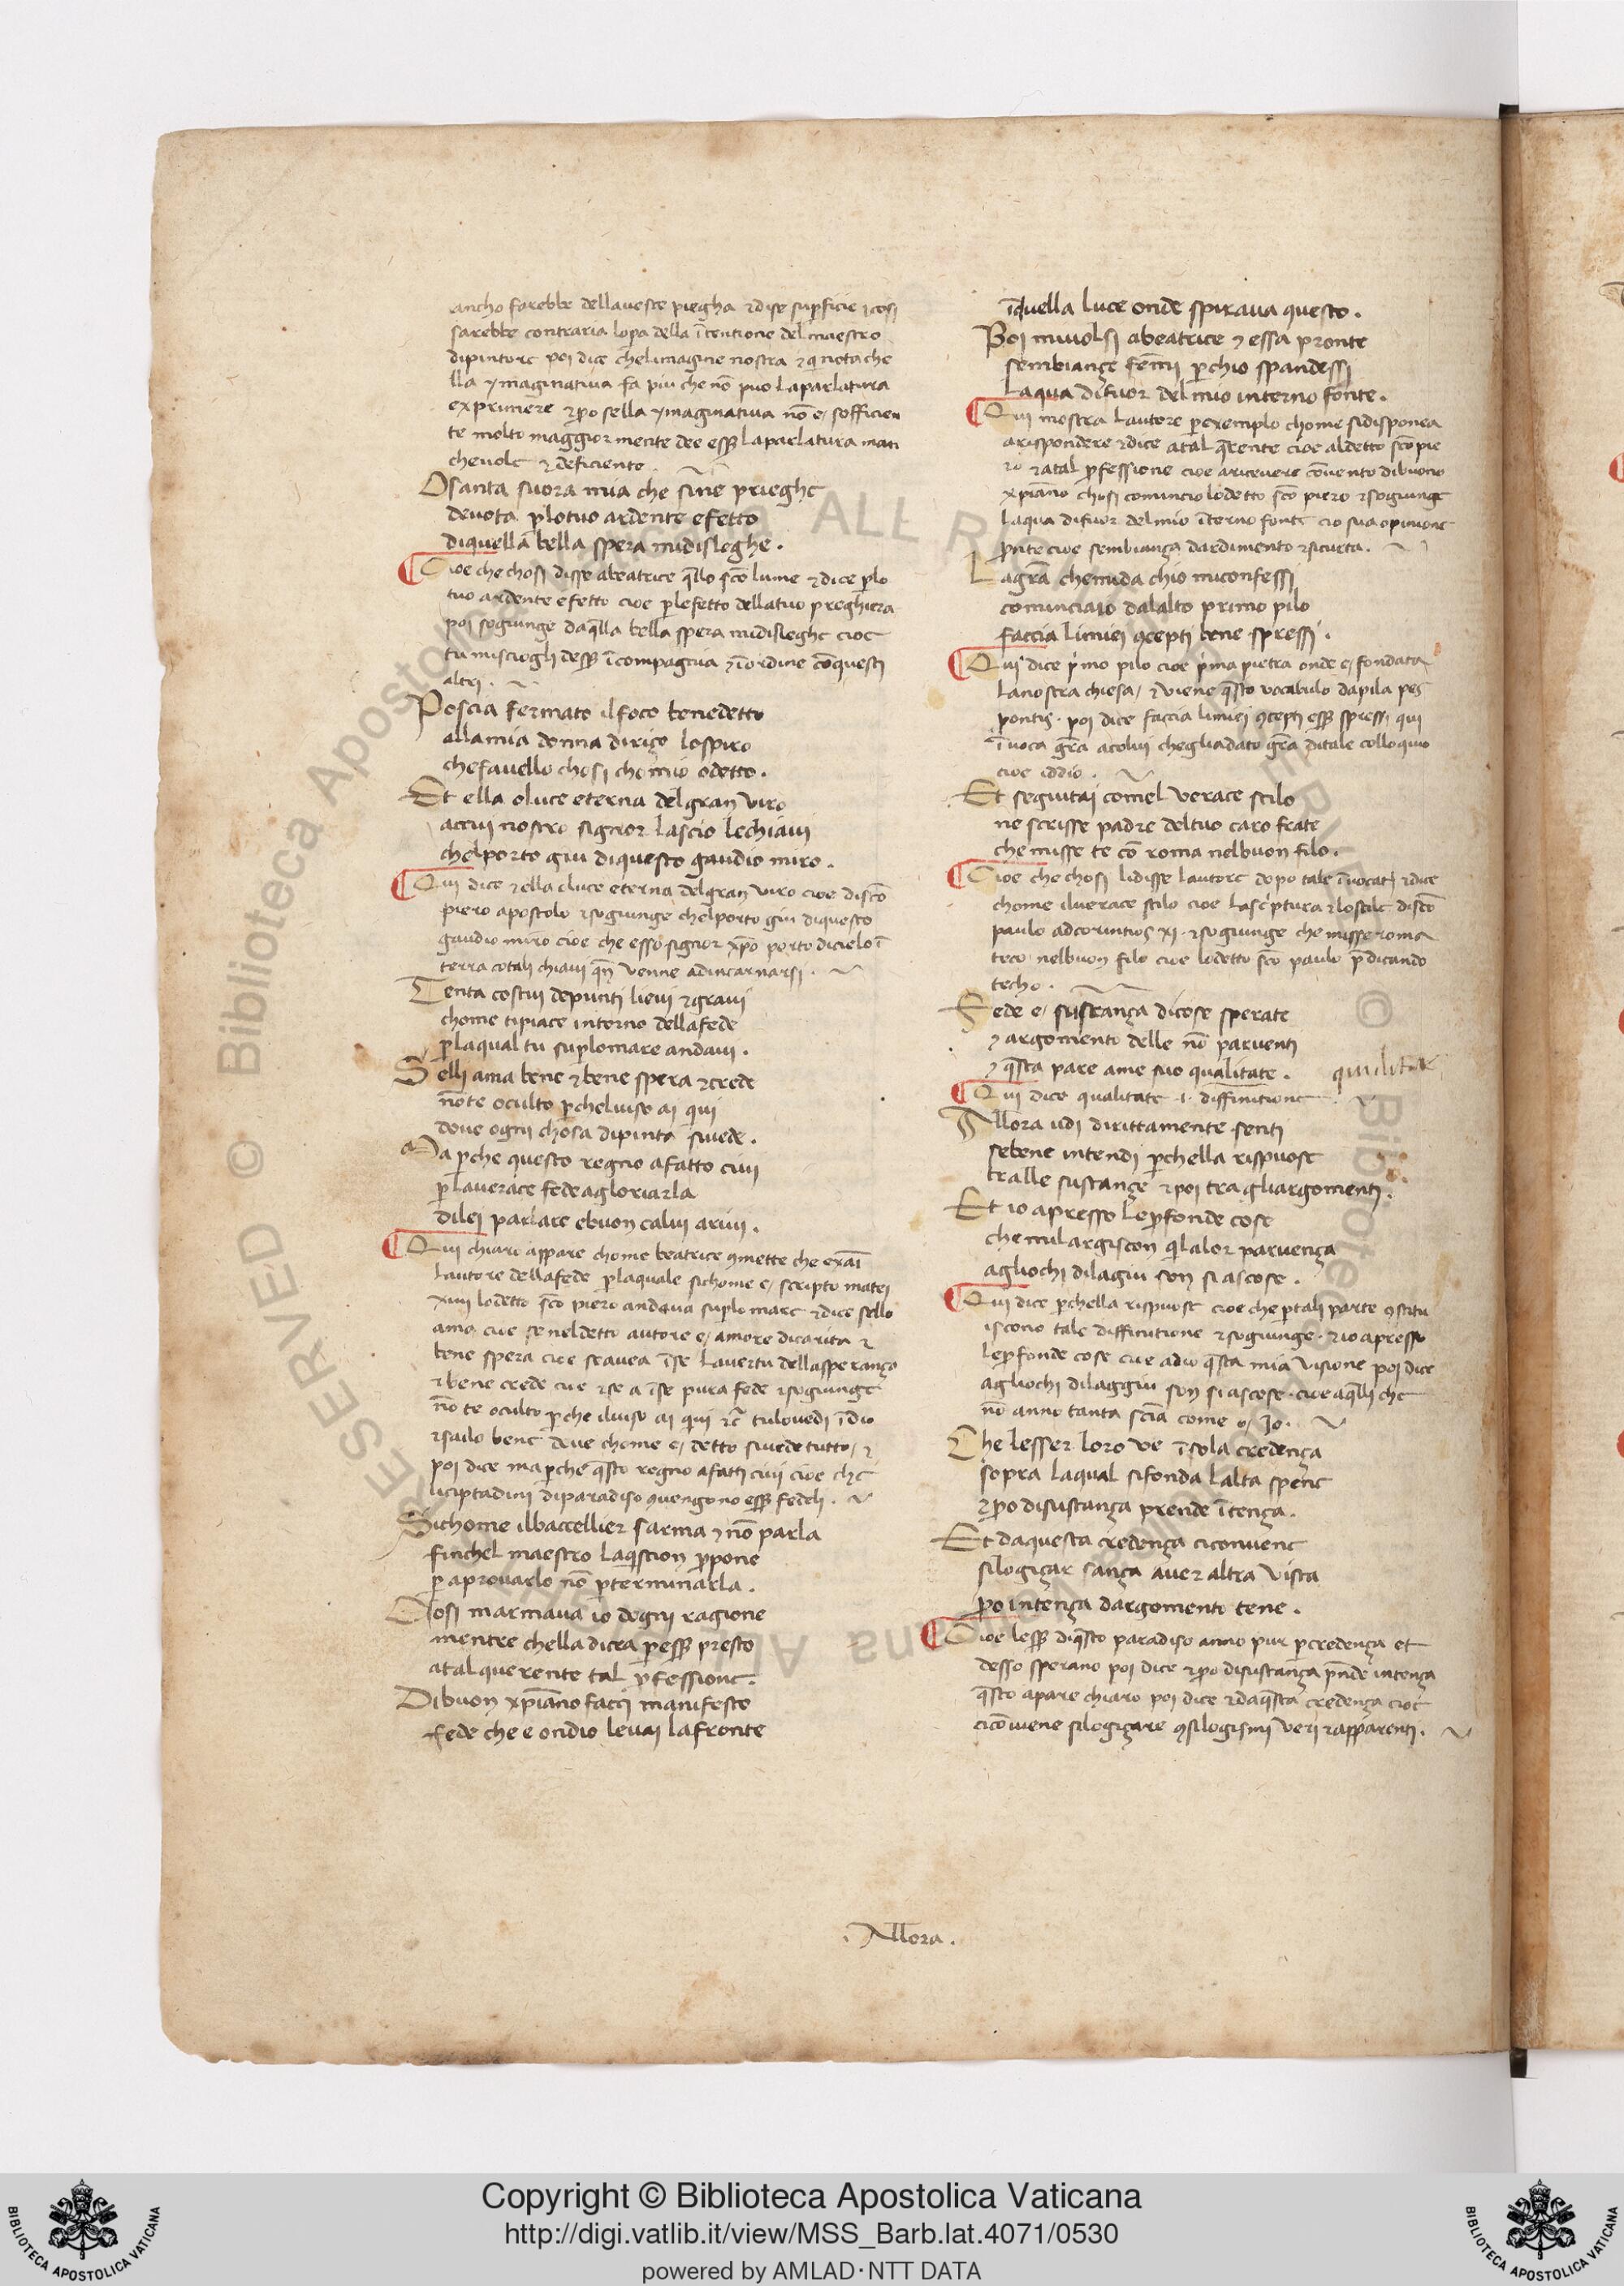 ancho farebbe dellaueste piegha ⁊dise supficie ⁊cosi
sarebbe contraria lopa della ītentione del maestro
dipintore poi dice chelimagine nostra ⁊q̄ nota che
lla ymaginatiua fa piu che nō puo laparlatura
exprimere ⁊po sella ymaginatiua nō e/ sofficien
te molto maggior mente dee ess̄ laparlatura man
cheuole ⁊ deficiente .
O santa suora mia che sine prieghe
deuota plotuo ardente efetto
diquella bella spera midisleghe .
Cioe che chosi disse abeatrice q̄llo sc̄o lume ⁊ dice plo
tuo ardente efetto cioe plefetto dellatuo preghiera
poi sogiunge daq̄lla bella spera midisleghe cioe
tu misciogli dess̄ ī compagnia ⁊ īordine cōquesti
altri .
Poscia fermato ilfoco benedetto
allamia donna diriçe lospiro
chefauello chosi chomio odetto .
Et ella oluce eterna delgran viro
acui nostro signor lascio lechiaui
chelporto giu diquesto gaudio miro .
Qui dice ⁊ ella oluce eterna delgran viro cioe disc̄o
piero apostolo ⁊sogiunge chelporto giu diquesto
gaudio miro cioe che esso signior xp̄o porto dicielo ī
terra cotali chiaui qn̄ venne adincarnarsi .
Tenta costui depunti lieui ⁊graui
chome tipiace intorno dellafede
plaqual tu suplomare andaui .
Selli ama bene ⁊bene spera ⁊crede
nōte oculto pcheluiso ai qui
doue ogni chosa dipinta siuede .
Ma pche questo regno afatto ciui
plauerace fede agloriarla
dilei parlare ebuon calui ariui .
Qui chiaro appare chome beatrice ꝯmette che exāi
lautore dellafede plaquale sichome e/ scripto matei
xiiii lodetto sc̄o piero andaua suplo mare ⁊dice sello
ama cioe se neldetto autore e/ amore dicarita ⁊
bene spera cioe seauea īse lauertu dellasperança
⁊bene crede cioe ⁊se a īse pura fede ⁊sogiunge
nō te oculto pche iluiso ai qui ⁊c̄ tulouedi īdio
⁊sailo bene doue chome e/ detto siuede tutto/ ⁊
poi dice ma pche q̄sto regno afatti ciui cioe che
liciptadini diparadiso ꝯuengono ess̄ fedeli .
Sichome ilbaccellier sarma ⁊ nō parla
finchel maestro laq̄stion ppone
p aprouarlo nō pterminarla .
Cosi marmaua io dogni ragione
mentre chella dicea pess̄ presto
atalquerente tal pfessione .
Dibuon xp̄iano facci manifesto
fede che e ondio leuai lafronte
īquella luce onde spiraua questo .
Poi miuolsi abeatrice ⁊ essa pronte
sembiançe fēmi pchio spandessi
Laqua difuor delmio interno fonte .
Qui mostra lautore pexemplo chome sidisponea
arispondere ⁊dice atal q̄rente cioe aldetto sc̄o pie
ro ⁊atal pfessione cioe ariceuere cōuento dibuono
xp̄iano chosi comincio lodetto sc̄o piero ⁊sogiunge
laqua difuor delmio īterno fonte cio sua opinione
pnte cioe sembiança dardimento ⁊sicurta .
Lagrā chemida chio miconfessi
cominciaio dalalto primo pilo
faccia limiei ꝯcepti bene spressi .
Qui dice p̄mo pilo cioe p̄ma pietra onde e/ fondata
lanostra chiesa/ ⁊ viene q̄sto vocabulo dapila pes
pontis . poi dice faccia limiei ꝯcepti ess̄ spressi qui
īuoca grā acolui chegliadato grā ditale colloquio
cioe iddio .
Et seguitai comel verace stilo
ne scrisse padre deltuo caro frate
che misse te cō roma nelbuon filo .
Cioe che chosi lidisse lautore dopo tale īuocatj ⁊dice
chome ilverace stilo cioe lascriptura ⁊lostile disc̄o
paulo adcorintios xi ⁊sogiunge che misse roma
teco nelbuon filo cioe lodetto sc̄o paulo pdicando
techo .
Fede e/ sustança dicose sperate
⁊ argomento delle nō paruenti
⁊ q̄sta pare ame suo qualitate .
qualitate
Qui dice qualitate .i. diffinitione .
Allora udi dirittamente senti
sebene intendi pchella rispuose
tralle sustançe ⁊poi tra gliargomenti .
Et io apresso lepfonde cose
che milargiscon qi lalor paruença
agliochi dilagiu son si ascose .
Qui dice pchella rispuose cioe che ptali parte ꝯstitu
iscono tale diffinitione ⁊sogiunge . ⁊io apresso
lepfonde cose cioe adio q̄sta mia visione poi dice
agliochi dilaggiu son si ascose . cioe aq̄lli che
nō anno tanta sciā come o/ Io .
Che lesser loro ve īsola credença
sopra laqual sifonda lalta spene
⁊po disustança prende ītença .
Et daquesta credença ciconuene
silogiçar sança auer altra vista
po intença dargomento tene .
Cioe less̄ diq̄sto paradiso anno pur pcredença et
desso sperano poi dice ⁊po disustança pnde intença
q̄sto apare chiaro poi dice ⁊daq̄sta credença cioe
cicōuiene silogiçare ꝯsilogismi veri ⁊apparenti .
. Allora .
Copyright © Biblioteca Apostolica Vaticana
http://digi.vatlib.it/view/MSS_Barb.lat.4071/0530
powered by AMLAD·NTT DATA
BIBLIOTECA APOSTOLICA VATICANA
BIBLIOTECA APOSTOLICA VATICANA